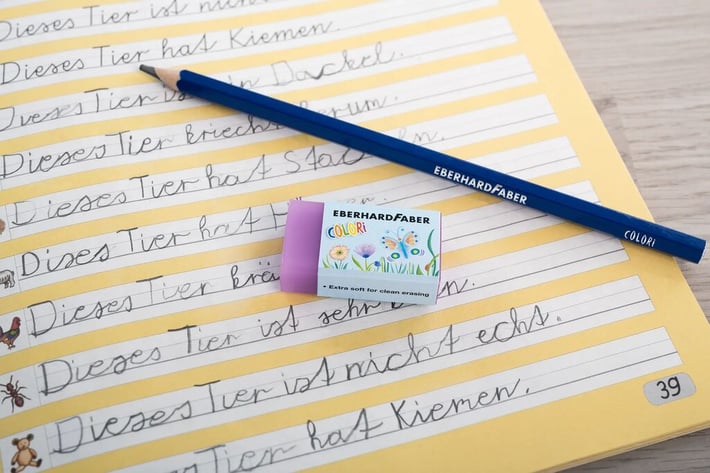 Dieses Tier ist
Dieses Tier hat Kiemen.
Dieses Tier Dackel.
Dieses Tier
Dieses Tier hat
Dises Tier hat
Dieses Tier
Dieses Tier ist sehr
Dieses Tier ist nicht echt.
Tier hat Kiemen.
EBERHARD FABER
COLORi
EBERHARD FABER
COLORi
• Extra soft for clean erasing
39